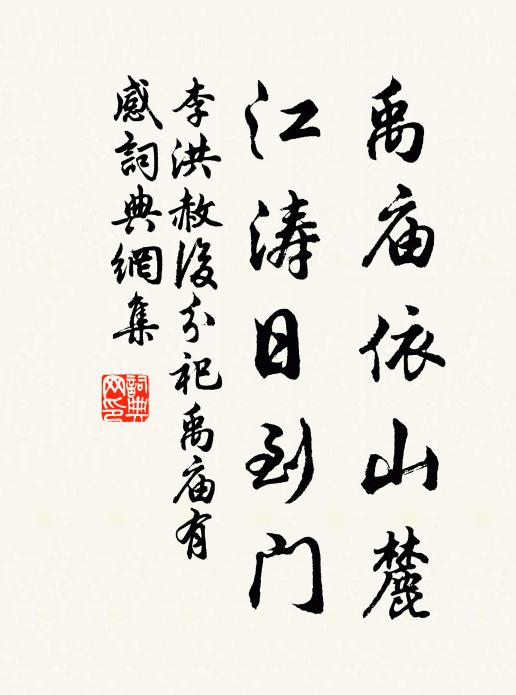 禹庙依山麓
江涛日到门
李洪赦後分祀禹庙有
感詞典網集
詞典网印